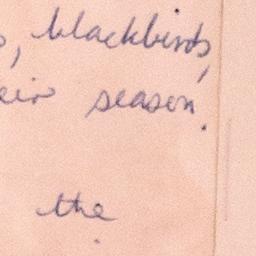 , blackbirds,
eir season.
the